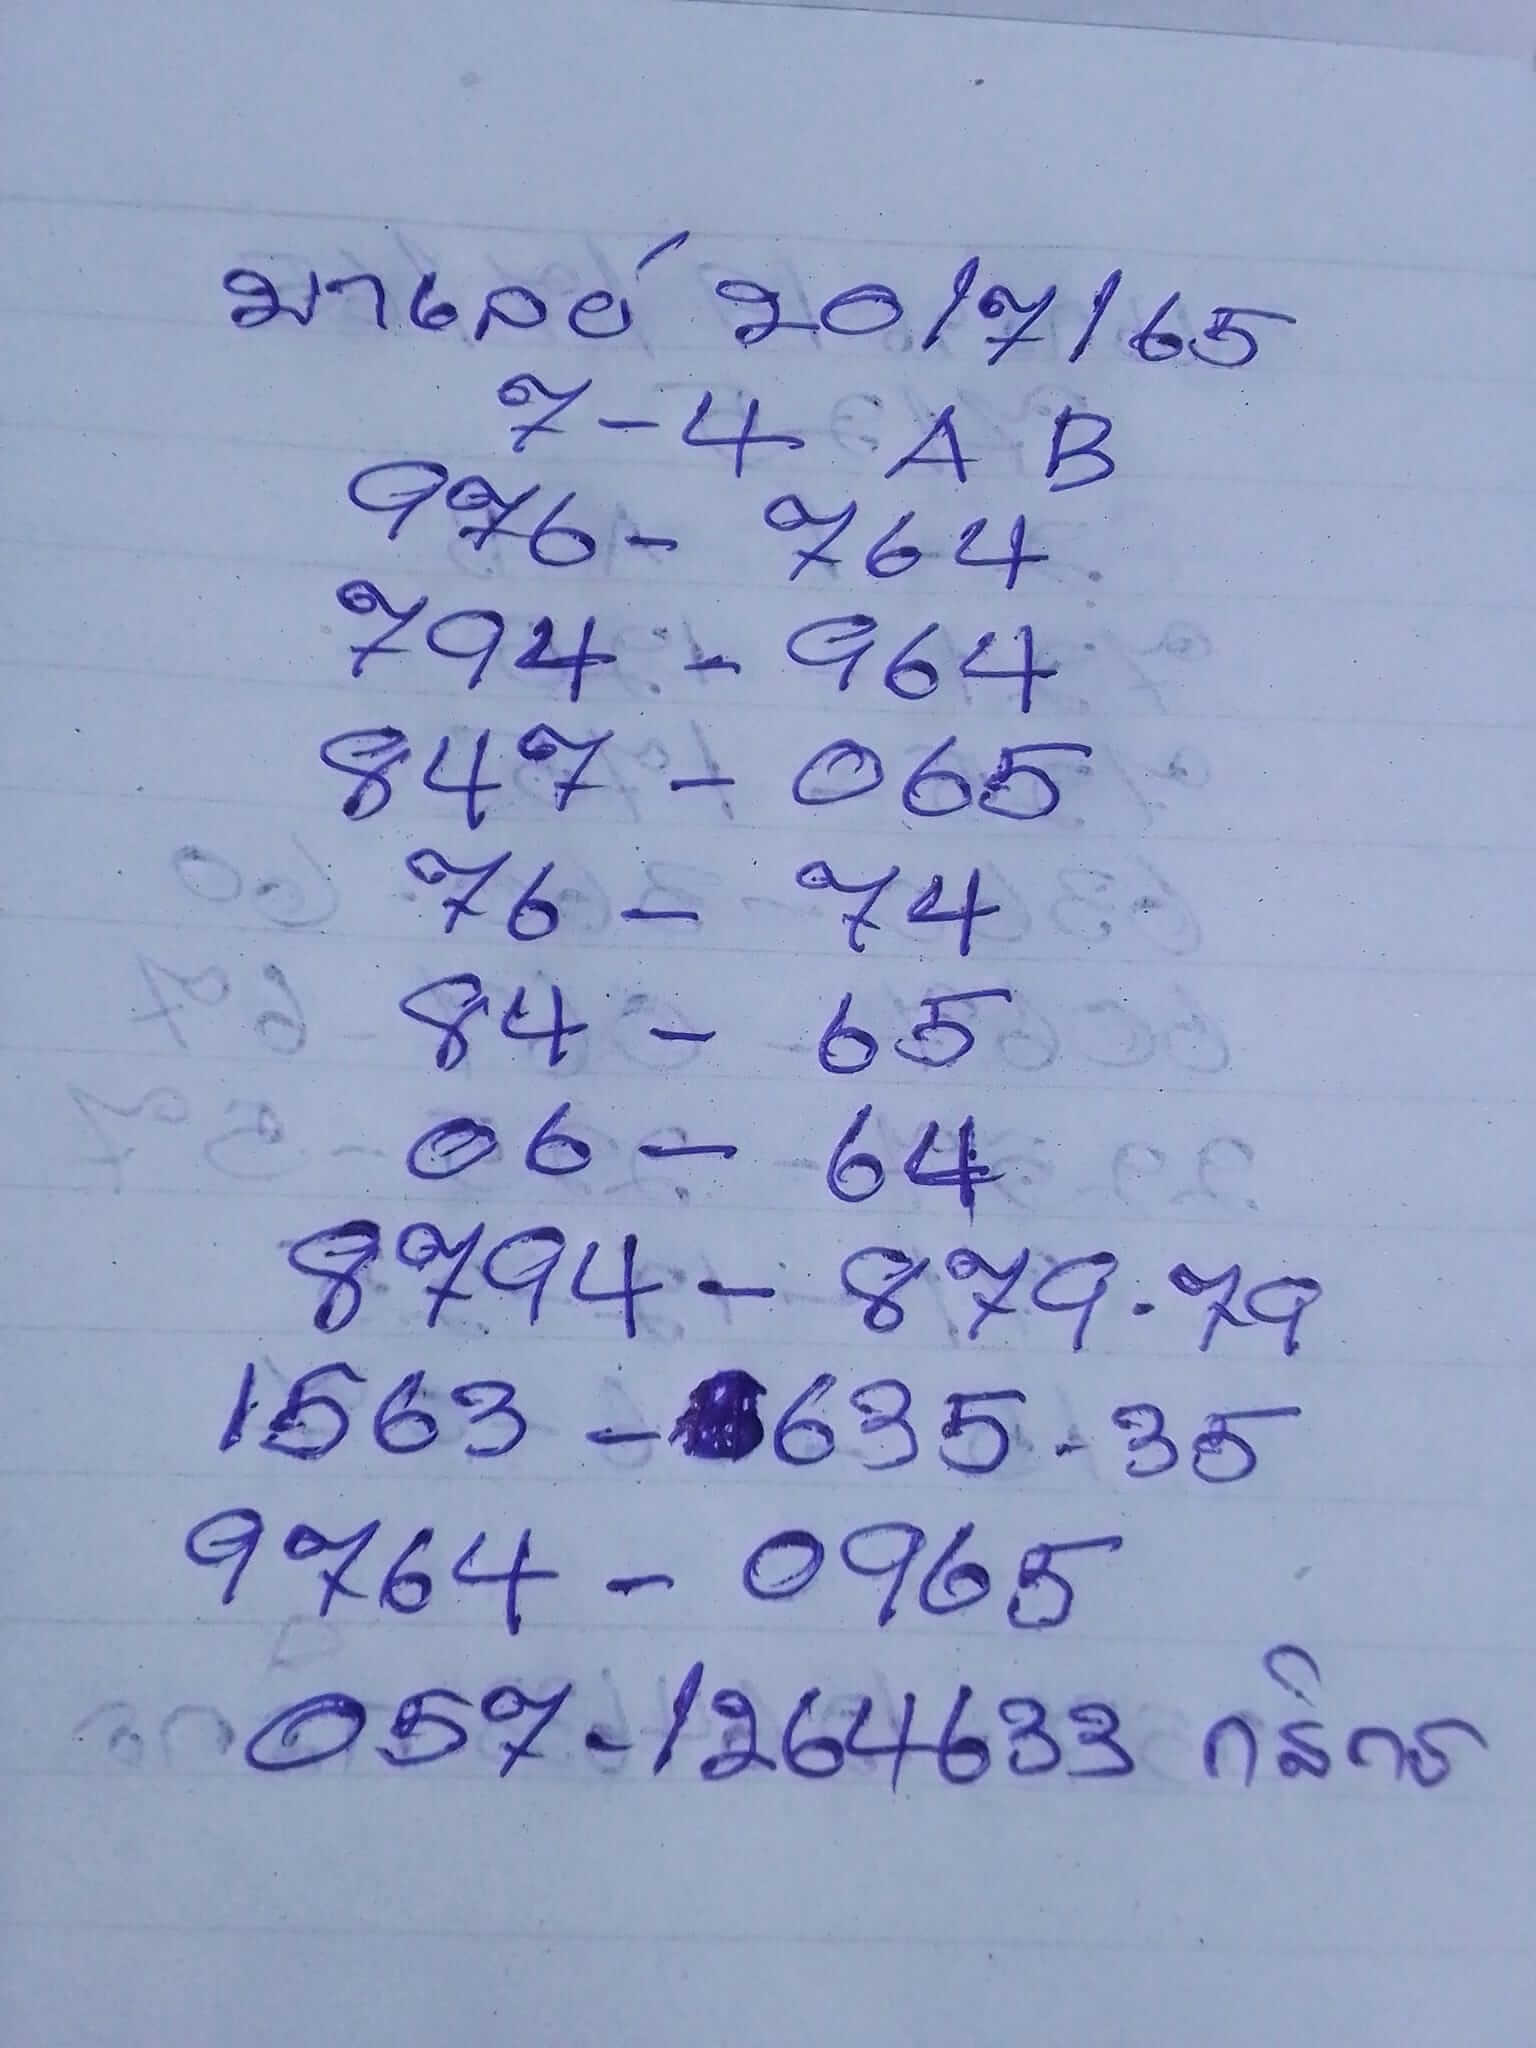 มาเลย์ 20/7/65
7-4 A B
976 - 764
794 - 964
847 - 065
76 - 74
84 - 65
06 - 64
8794 - 879.79
1563 - 635.35
9764 - 0965
057-1264633